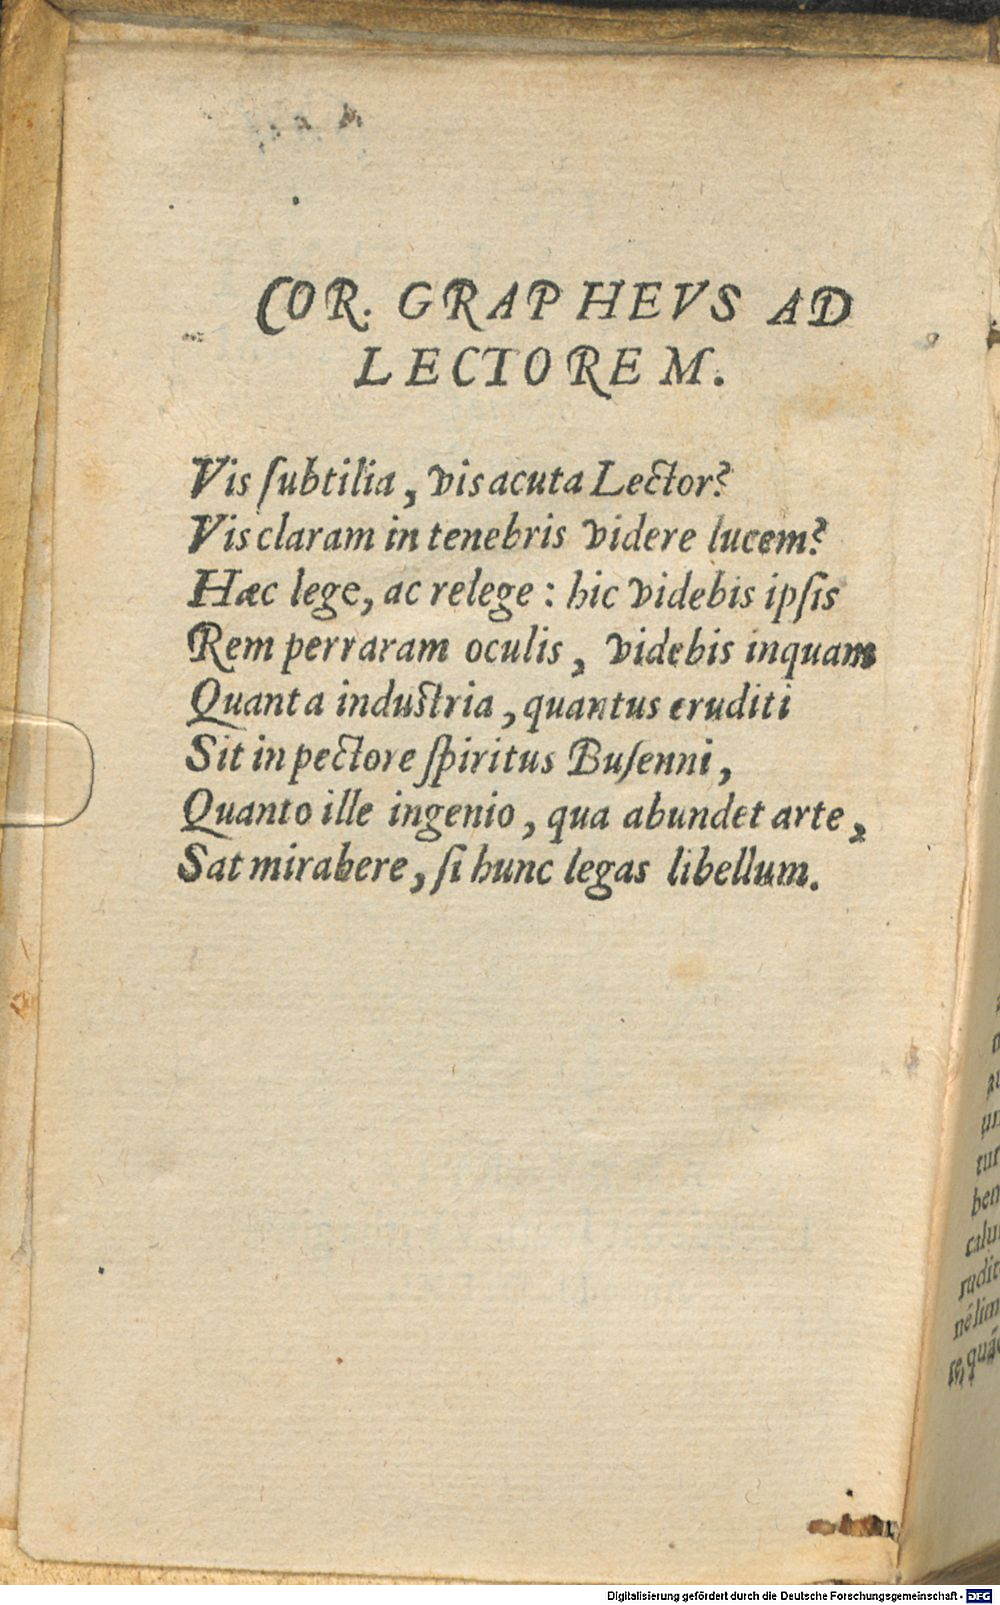 COR. GRAPHEVS AD
LECTOREM.
Vis ſubtilia, vis acuta Lector?
Vis claram in tenebris videre lucem?
Hæc lege, ac relege: hic videbis ipſis
Rem perraram oculis, videbis inquam
Quanta industria, quantus eruditi
Sit in pectore ſpiritus Buſenni,
Quanto ille ingenio, qua abundet arte,
Sat mirabere, ſi hunc legas libellum.
ben
calu
rudit
nélim
re, quã
Digitalisierung gefördert durch die Deutsche Forschungsgemeinschaft - DFG